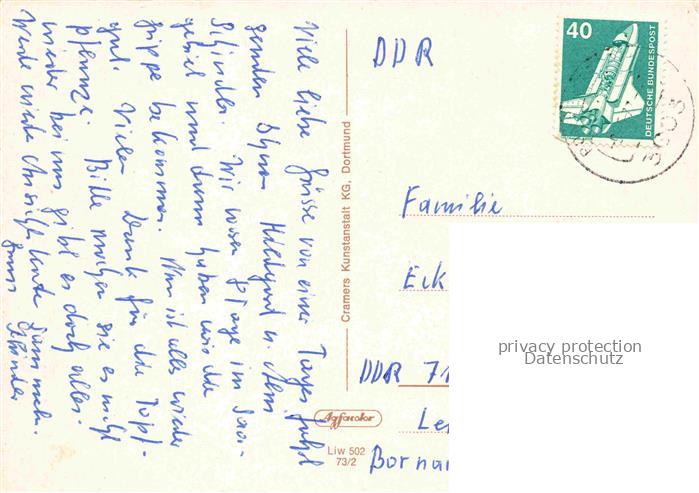 Viele liebe Grüsse von einer Tagesfahrt
senden Ihnen Hildegard u. Klein
Schindler. Wir waren 8 Tage im Saar-
gebiet und dann haben wir die
Grippe bekommen. Nun ist alles wieder
gut. Vielen Dank für die Topf-
pflanze. Bitte machen sie es nicht
wieder bei uns gibt es doch alles.
Werde wieder Ansichtskarte sammeln.
Gruss Schindler
Cramers Kunstanstalt KG, Dortmund
DDR
40
DEUTSCHE BUNDESPOST
Familie
Eck
DDR 71
Le
Borna
Agfacolor
Liw 502
73/2
privacy protection
Datenschutz